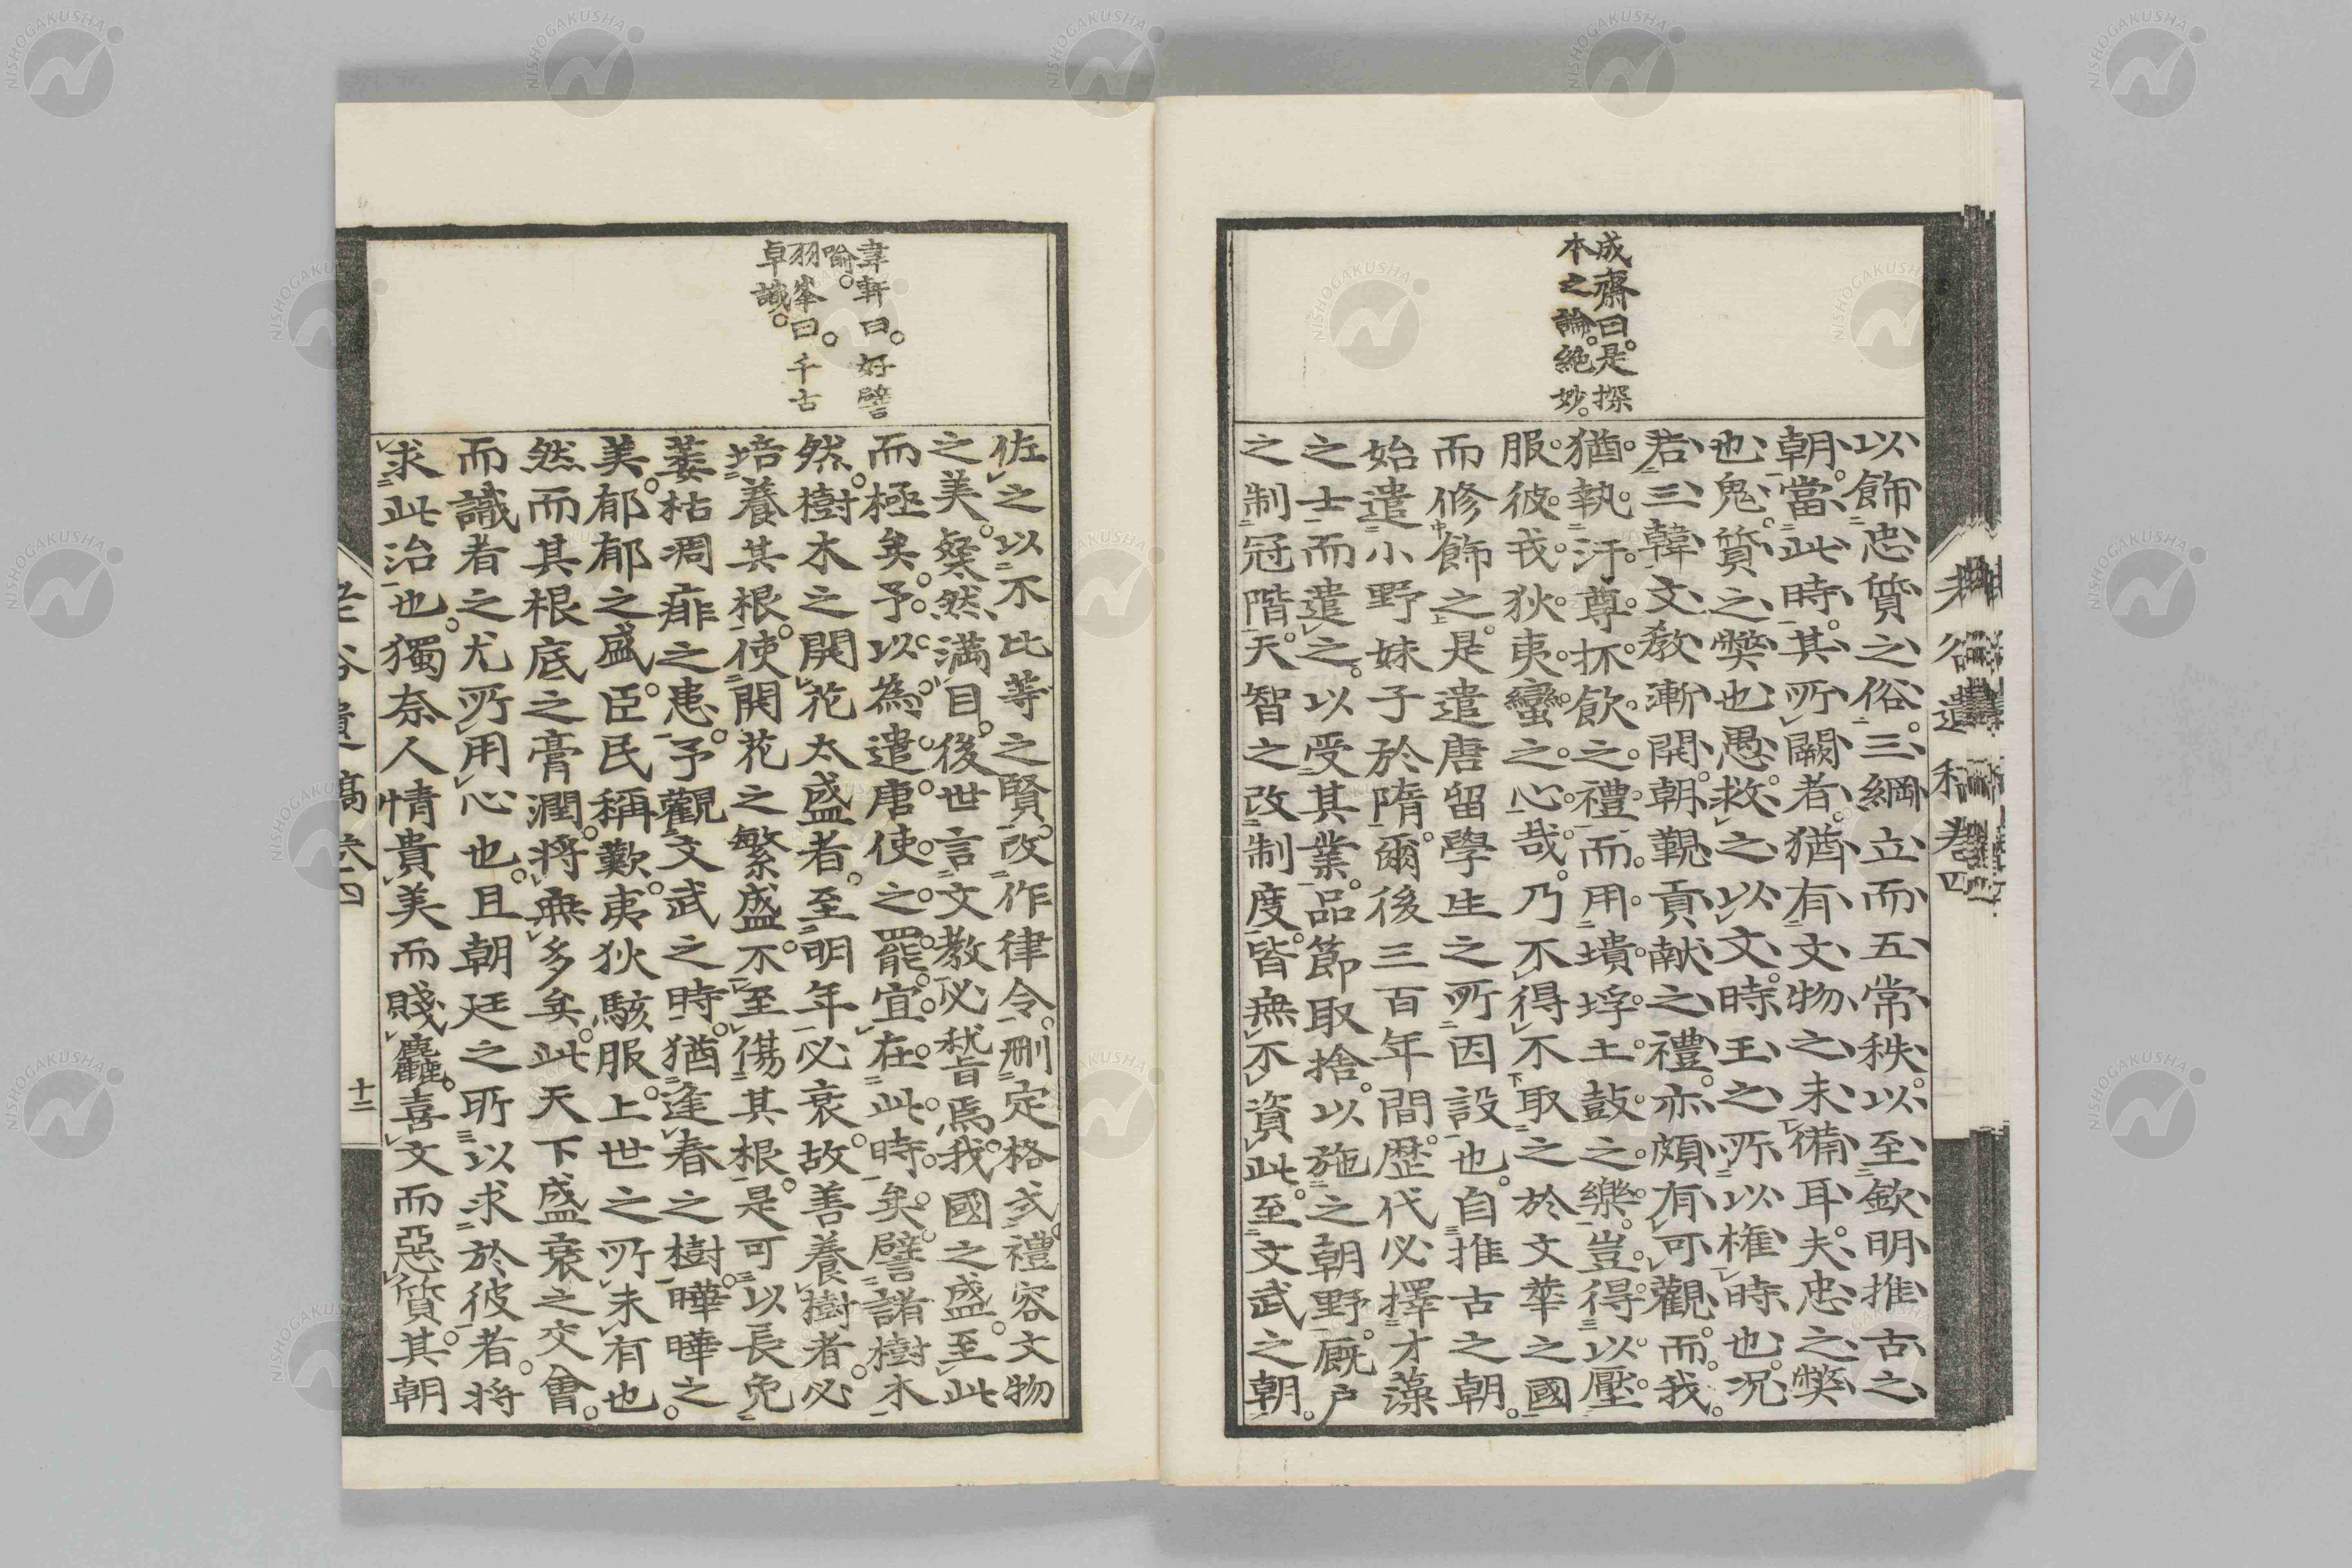 成齋曰。是探
本之論。絶妙。
以飾忠質之俗。三綱立而五常秩。以至欽明推古之
朝。當此時。其所闕者。猶有文物之未備耳。夫忠之獘
也鬼。質之獘也愚。救之以文。時王之所以権時也。况
君三韓。文教漸開。朝覲貢献之禮。亦頗有可觀。而我。
猶執汙尊抔飲之禮。而用墳垺土鼓之樂。豈得以壓
服彼戎狄夷蠻之心哉。乃不得不取之於文華之國
而修飾之。是遣唐留學生之所因設也。自推古之朝。
始遣小野妹子於隋。爾後三百年間。歴代必擇才藻
之士而遣之。以受其業。品節取捨。以施之朝野。厩戸
之制冠階。天智之改制度。皆無不資此。至文武之朝。
韋軒曰。好譬
喻。
羽峯曰。千古
卓識。
佐之以不比等之賢。改作律令。刪定格式。禮容文物
之美。粲然満目。後世言文教必稽焉。我國之盛。至此
而極矣。予以為遣唐使之罷。宜在此時矣。譬諸樹木
然。樹木之開花太盛者。至明年必衰。故善養樹者。必
培養其根。使開花之繁盛。不至傷其根。是可以長免
萎枯凋痱之患。予觀文武之時。猶逢春之樹。曄曄之
美。郁郁之盛。臣民稱歎。夷狄駭服。上世之所未有也。
然而其根底之膏潤。将無多矣。此天下盛衰之交會。
而識者之尤所用心也。且朝廷之所以求於彼者。将
求此治也。獨奈人情貴美而賤麤。喜文而惡質。其朝
老谷遺稿 卷四
十二